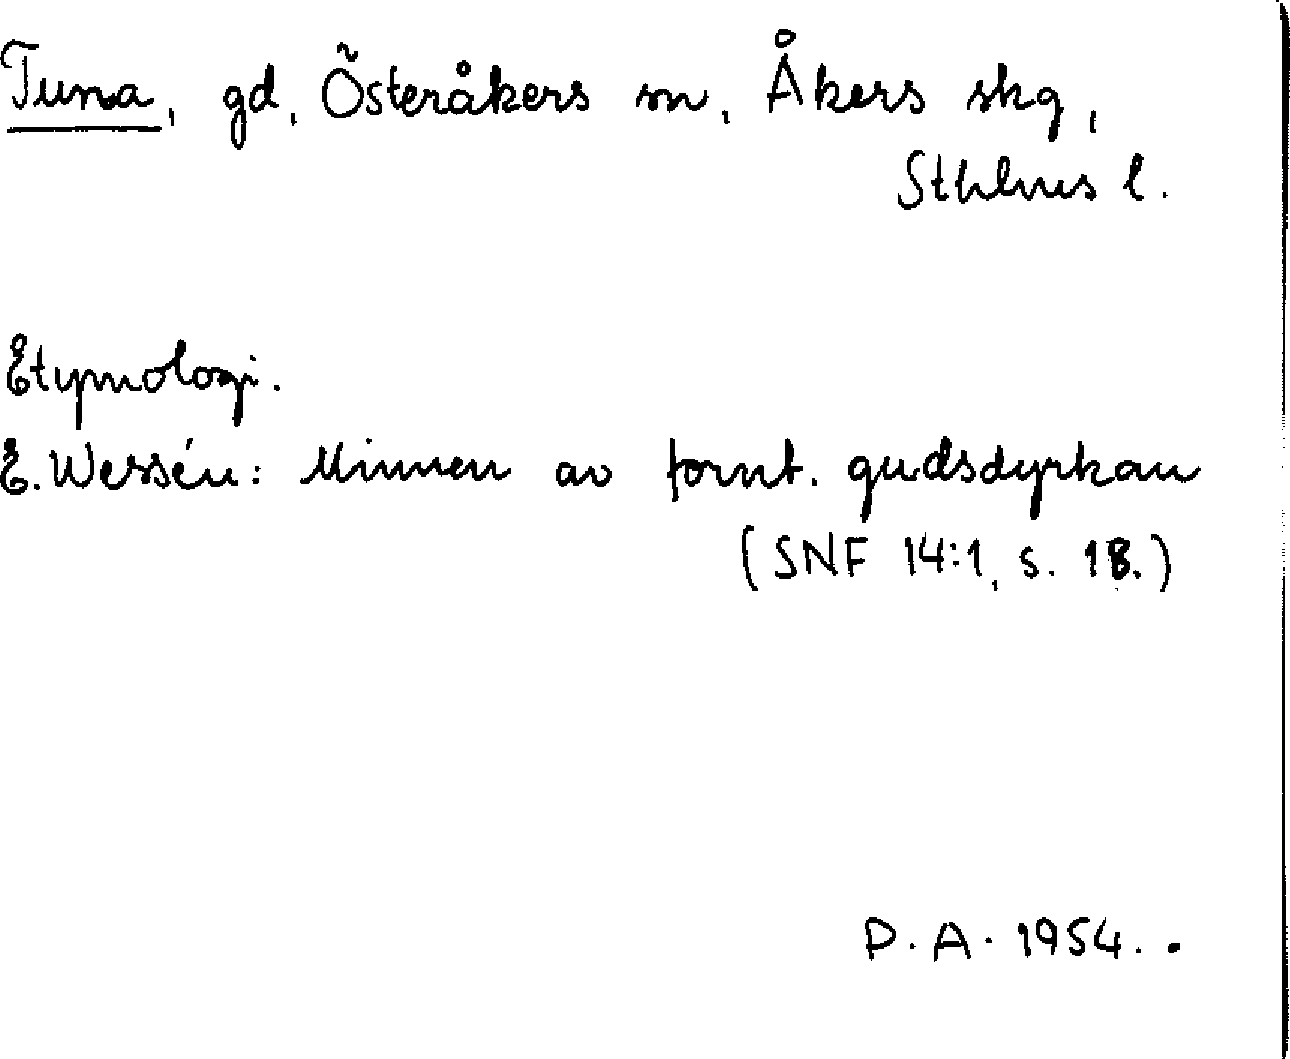 Tuna, gd, Österåkers sn, Åkers skg,
Sthlms l.
Etymologi.
E. Wessén: Minnen av fornt. gudsdyrkan
(SNF 14:1, s. 18.)
P. A. 1954.